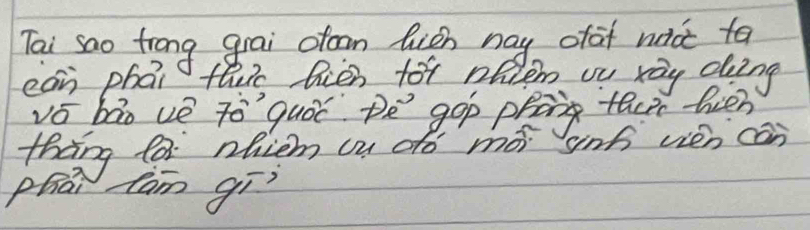 Tại sao trong giai đoạn hiện nay đất nước ta
cần phải thực hiện tốt nhiệm vụ xây dựng
và bảo vệ tổ quốc. Để góp phần thực hiện
thắng lợi nhiệm vụ đó mỗi sinh viên cần
phải làm gì?